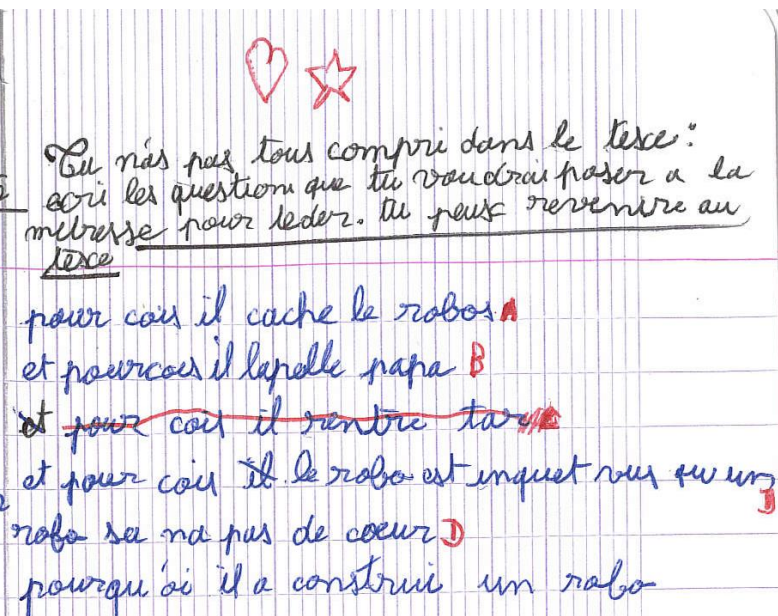 Tu n'as pas tous compri dans le texce :
ecri les question que tu voudrai poser a la
metresse pour leder. tu peux revenire au
texce
pour cois il cache le robos A
et pourcois il lapelle papa B
et pour cois il rentre tar
et pour cois il le robo est inquet vus qu un
robo sa na pas de coeur D
pourqu'oi il a construi un robo